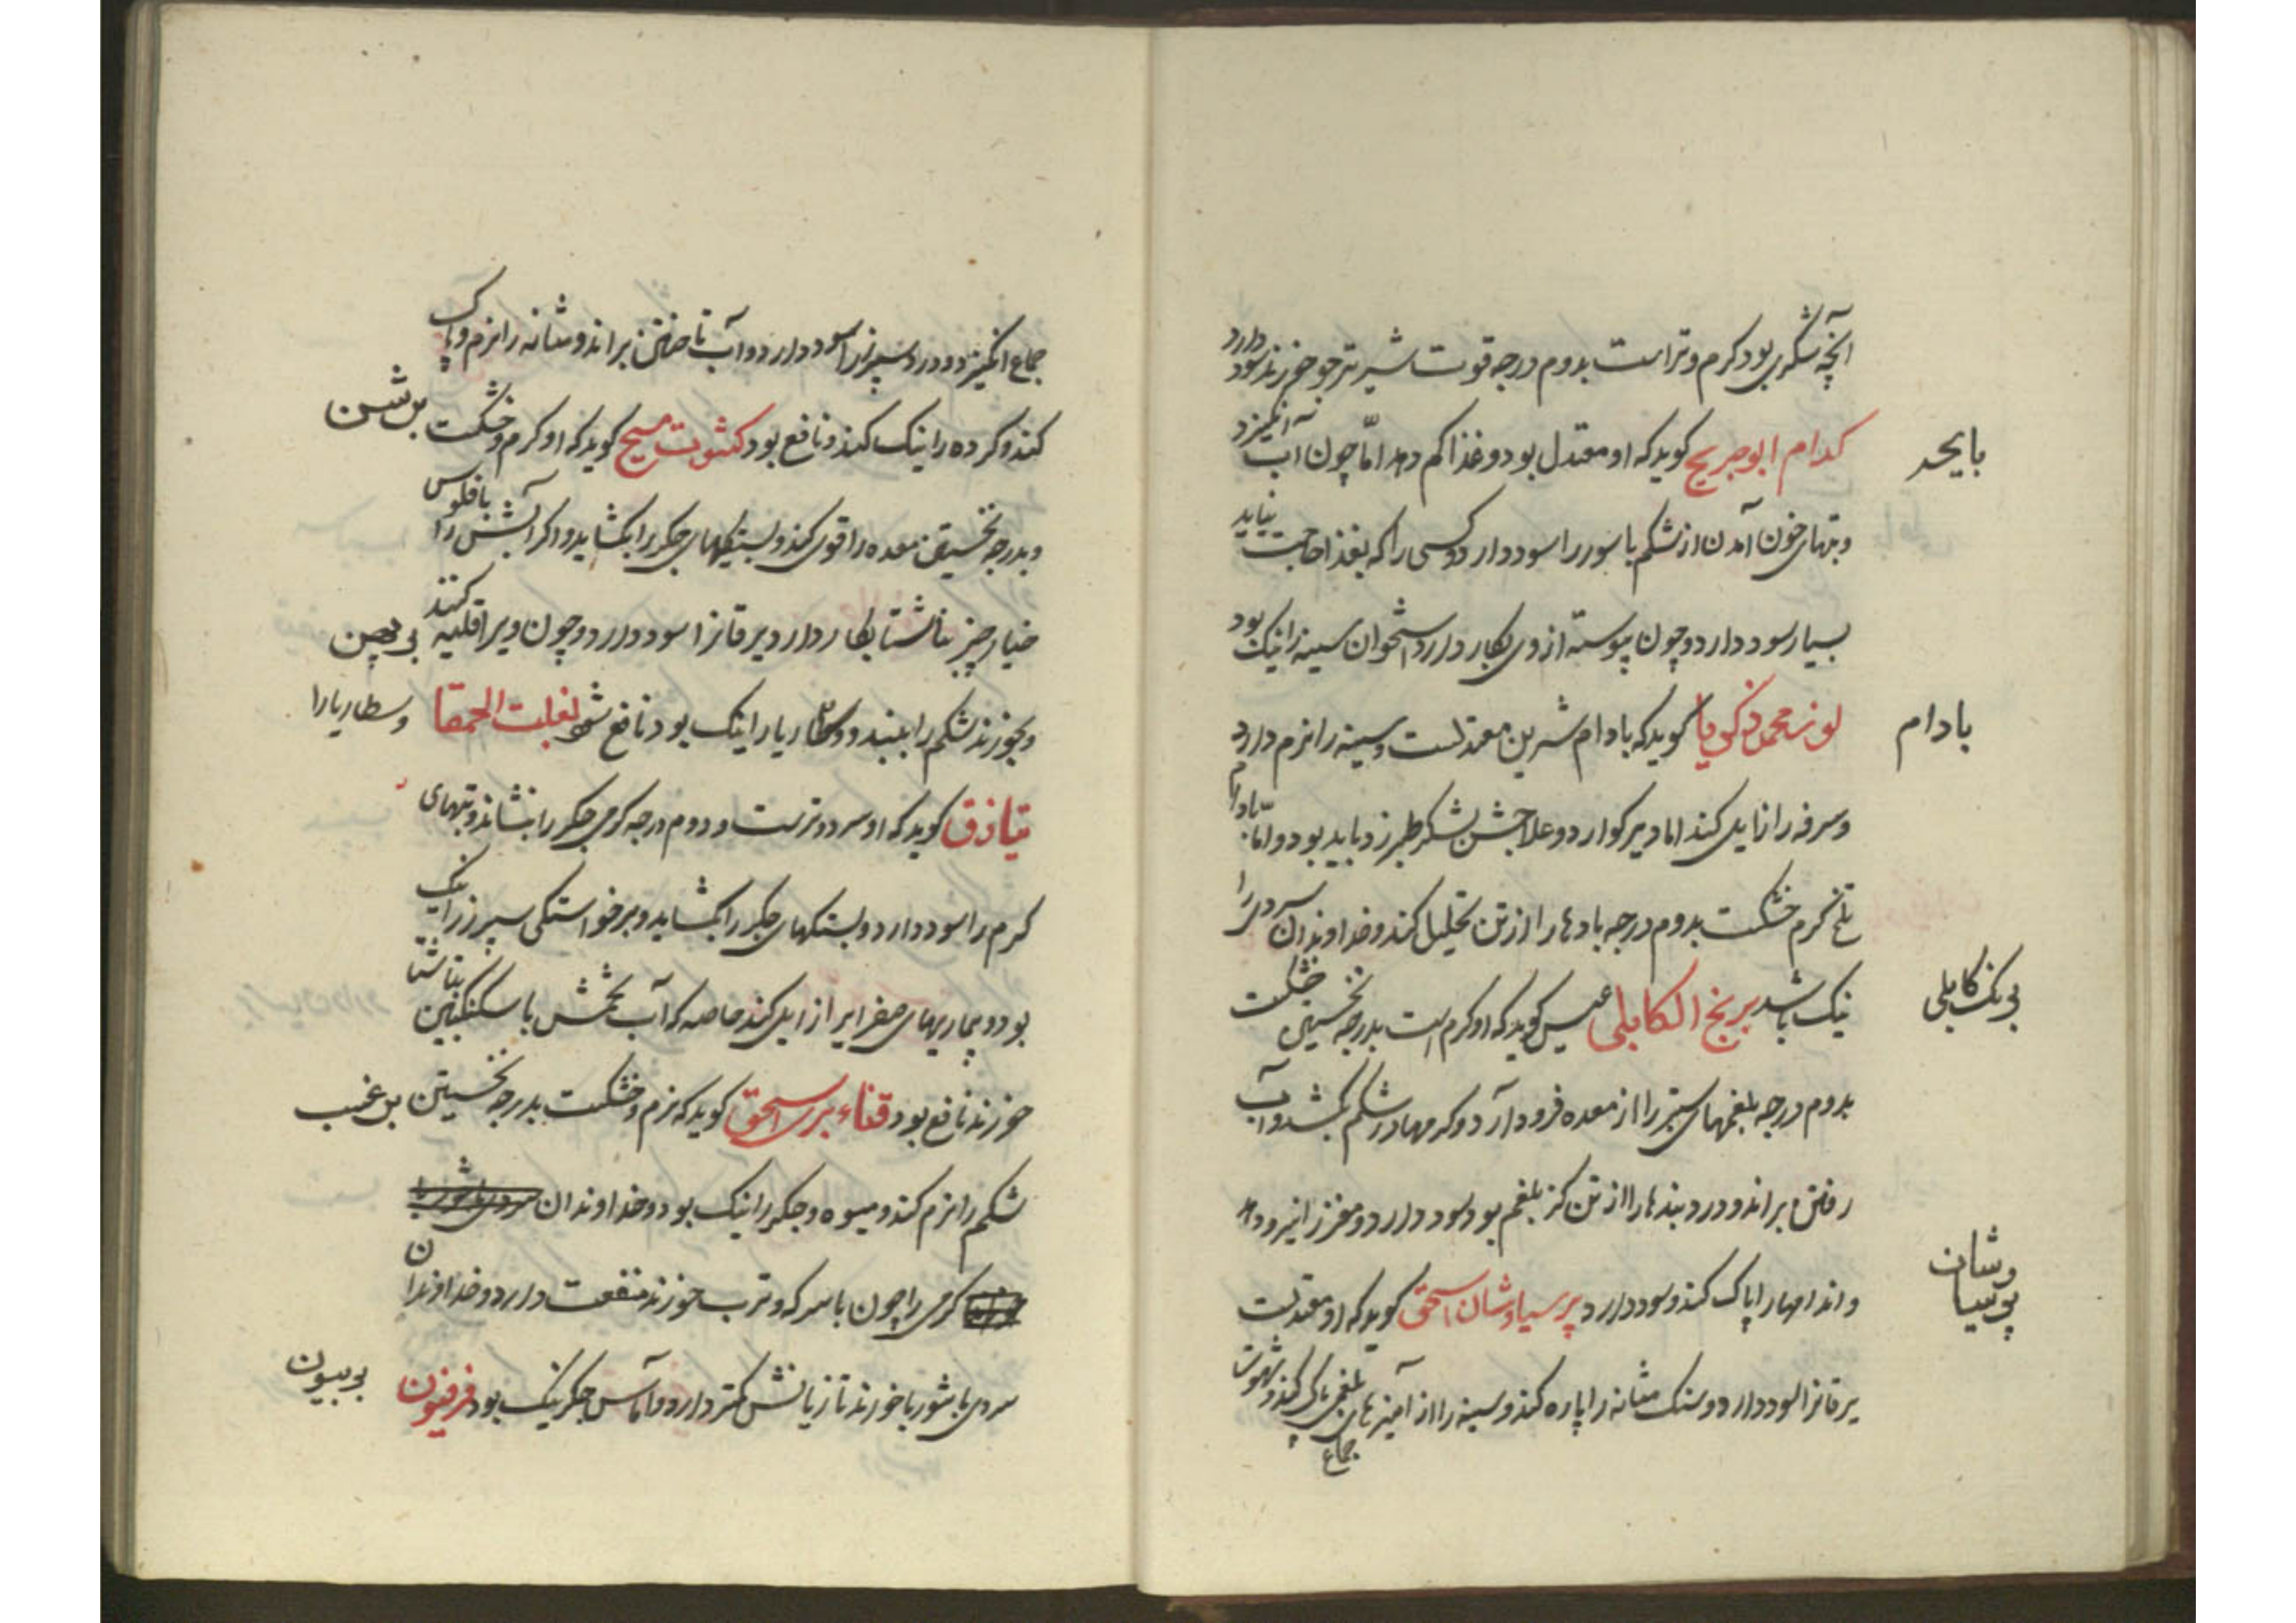 آنچه شکری بود کرم و تر است بدوم درجه قوت شیر تر چو خورند سود دارد
بایحد
کدام ابو جریج کوید که او معتدل بود و غذا کم دهد امّا چون آب آمیزد
و تبهای خون آمدن از شکم باسور را سود دارد و کسی را که بغذا حاجت نیاید
بسیار سود دارد و چون پیوسته از وی بکار دارد استخوان سینه را نیک بود
بادام
لوز محمد زکریا کوید که بادام شیرین معتدلست و سینه را نرم دارد
و سرفه را زایل کند اما دیر کوارد و علاجش شکر طبرزد باید بود و امّا بادام
تلخ کرم خشکست بدوم درجه بادها را از تن تحلیل کند و خداوندان سردی را
برنک کابلی
نیک باشد برنج الکابلی عیسی کوید که او کرم است بدرجه نخستین خشکست
بدوم درجه بلغمهای ستبر را از معده فرود آرد و کرمها در شکم بکشد و آب
رفتن براند و درد بندها را از تن کز بلغم بود سود دارد و مغز را نیرو دهد
پرسیاوشان
و اندامها را پاک کند و سود دارد پرسیاوشان اسحق کوید که او معتدلست
یرقانرا سود دارد و سنک مثانه را پاره کند و سینه را از آمیزهای بلغمی پاک کند و شهوت
جماع
جماع انکیزد و درد سپرز را سود دارد و آب تاختن براند و مثانه را نرم و پاک
کند و کرده را نیک کند و نافع بود کشوت مسیح کوید که او کرم و خشکست
و بدرجه نخستین معده را قوی کند و بستکیهای جکر را بکشاید و اکر آبش را با فلوس
خیار چنبر بناشتا بکار دارد یرقانرا سود دارد و چون ویرا قلیه کنند
و بخورند شکم را ببندد و سطاریا را نیک بود نافع شود بقلت الحمقا
وسطاریا را
تیاذق کوید که او سرد و ترست و دوم درجه کرمی جکر را بنشاند و تبهای
کرم را سود دارد و بستکهای جکر را بکشاید و برخواستکی سپرز را نیک
بود و بیماریهای صفرا یرا زایل کند خاصه که آب تخمش با سکنکبین بناشتا
خورند نافع بود قثاء بری اسحق کوید که نرم و خشکست بدرجه نخستین
شکم را نرم کند و میوه و جکر را نیک بود و خداوندان
کرمی را چون با سرکه و ترب خورند منفعت دارد و خداوندان
سردی با شوربا خورند تا زیانش کمتر دارد و آماس جکر نیک بود فرفیون
بربیون